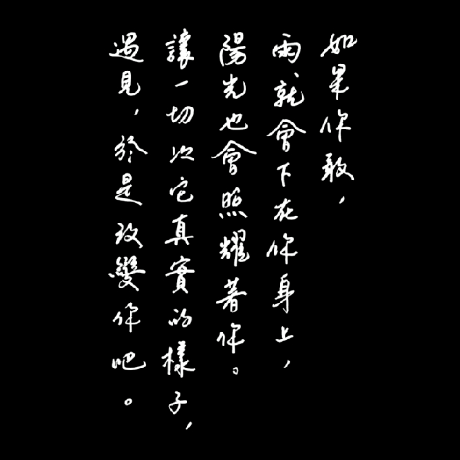 如果你敢,
雨就會下在你身上,
陽光也會照耀著你。
讓一切以它真實的樣子,
遇見,於是改變你吧。